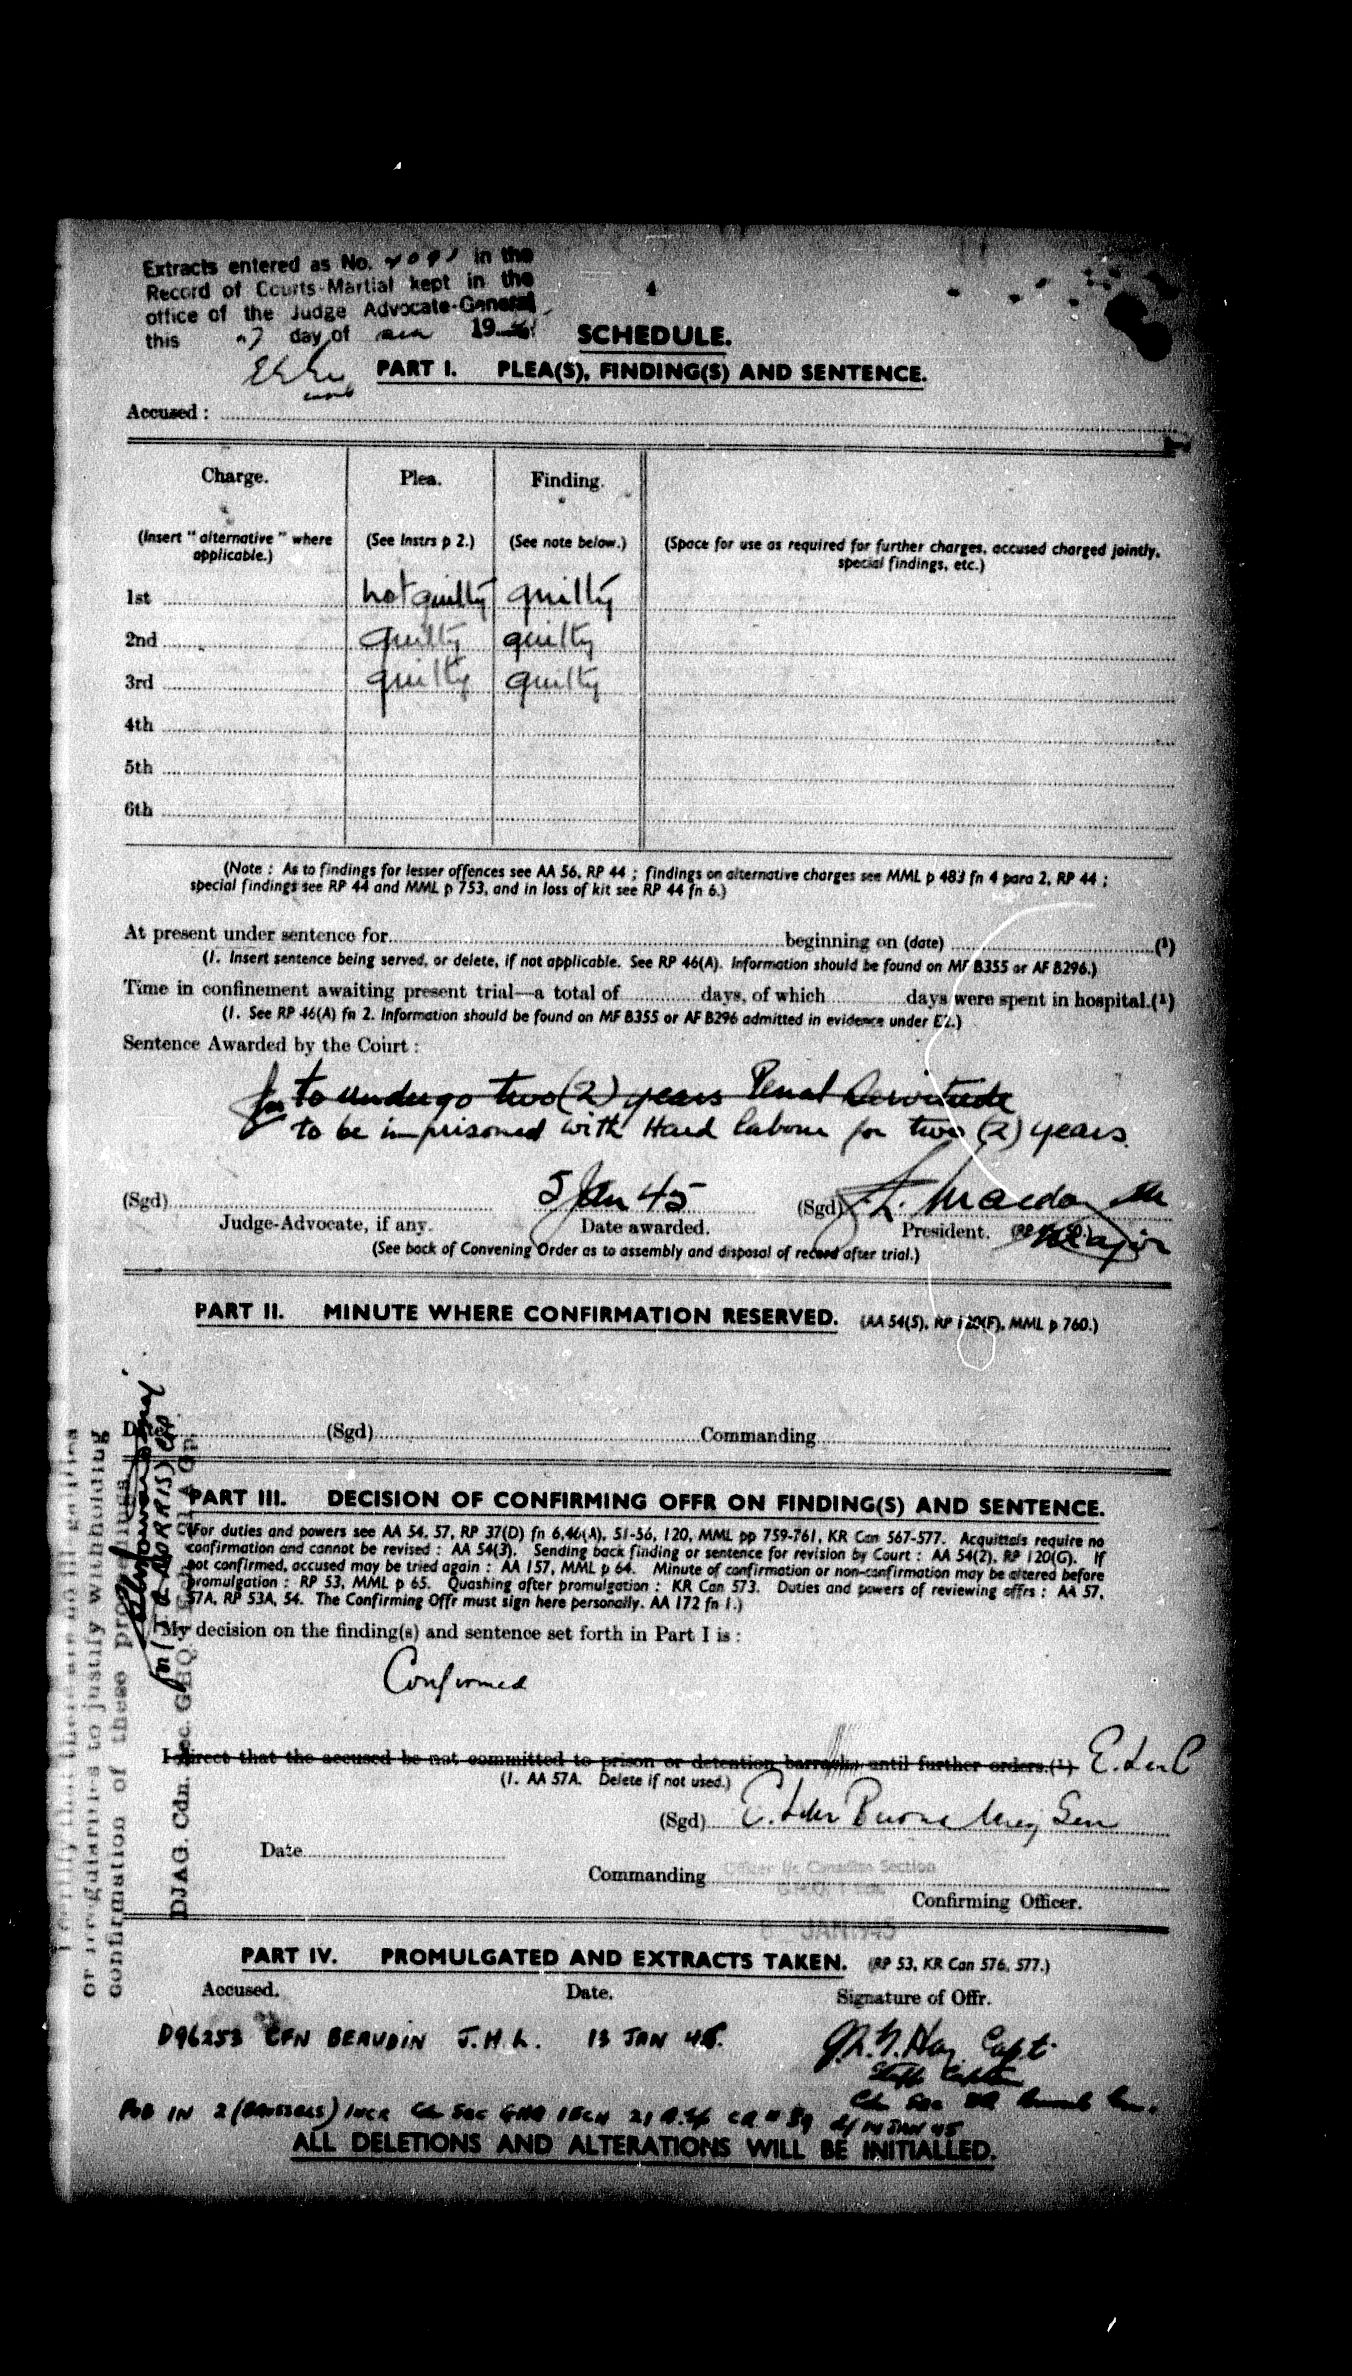 Extracts entered as No. in the
Record of Courts-Martial kept in the
office of the Judge Advocate-General
this day of 19
4
SCHEDULE.
PART I. PLEA(S), FINDING(S) AND SENTENCE.
Accused :
Charge. Plea. Finding.
(Insert " alternative " where applicable.) (See Instrs p 2.) (See note below.) (Space for use as required for further charges, accused charged jointly, special findings, etc.)
1st not guilty guilty
2nd guilty guilty
3rd guilty guilty
4th
5th
6th
(Note : As to findings for lesser offences see AA 56, RP 44 ; findings on alternative charges see MML p 483 fn 4 para 2, RP 44 ;
special findings see RP 44 and MML p 753, and in loss of kit see RP 44 fn 6.)
At present under sentence for beginning on (date) (1)
(1. Insert sentence being served, or delete, if not applicable. See RP 46(A). Information should be found on MF B355 or AF B296.)
Time in confinement awaiting present trial—a total of days, of which days were spent in hospital.(1)
(1. See RP 46(A) fn 2. Information should be found on MF B355 or AF B296 admitted in evidence under E2.)
Sentence Awarded by the Court :
to undergo two (2) years Penal Servitude
to be imprisoned with Hard labour for two (2) years.
(Sgd) 5 Jan 45 (Sgd)
Judge-Advocate, if any. Date awarded. President. Major
(See back of Convening Order as to assembly and disposal of record after trial.)
PART II. MINUTE WHERE CONFIRMATION RESERVED. (AA 54(5), RP 120(F), MML p 760.)
Date (Sgd) Commanding
PART III. DECISION OF CONFIRMING OFFR ON FINDING(S) AND SENTENCE.
(For duties and powers see AA 54, 57, RP 37(D) fn 6,46(A), 51-56, 120, MML pp 759-761, KR Can 567-577. Acquittals require no
confirmation and cannot be revised : AA 54(3). Sending back finding or sentence for revision by Court : AA 54(2), RP 120(G). If
not confirmed, accused may be tried again : AA 157, MML p 64. Minute of confirmation or non-confirmation may be altered before
promulgation : RP 53, MML p 65. Quashing after promulgation : KR Can 573. Duties and powers of reviewing offrs : AA 57,
57A, RP 53A, 54. The Confirming Offr must sign here personally. AA 172 fn 1.)
My decision on the finding(s) and sentence set forth in Part I is :
Confirmed
I direct that the accused be not committed to prison or detention barracks until further orders.(1)
(1. AA 57A. Delete if not used.)
(Sgd) Maj Gen
Date
Commanding Officer i/c Canadian Section
Confirming Officer.
JAN 1945
or irregularities to justify withholding
confirmation of these proceedings
DJAG. Cdn. Sec. GHQ
PART IV. PROMULGATED AND EXTRACTS TAKEN. (RP 53, KR Can 576, 577.)
Accused. Date. Signature of Offr.
D96253 CFN BEAUDIN J.H.L. 13 JAN 45. Capt.
ALL DELETIONS AND ALTERATIONS WILL BE INITIALLED.